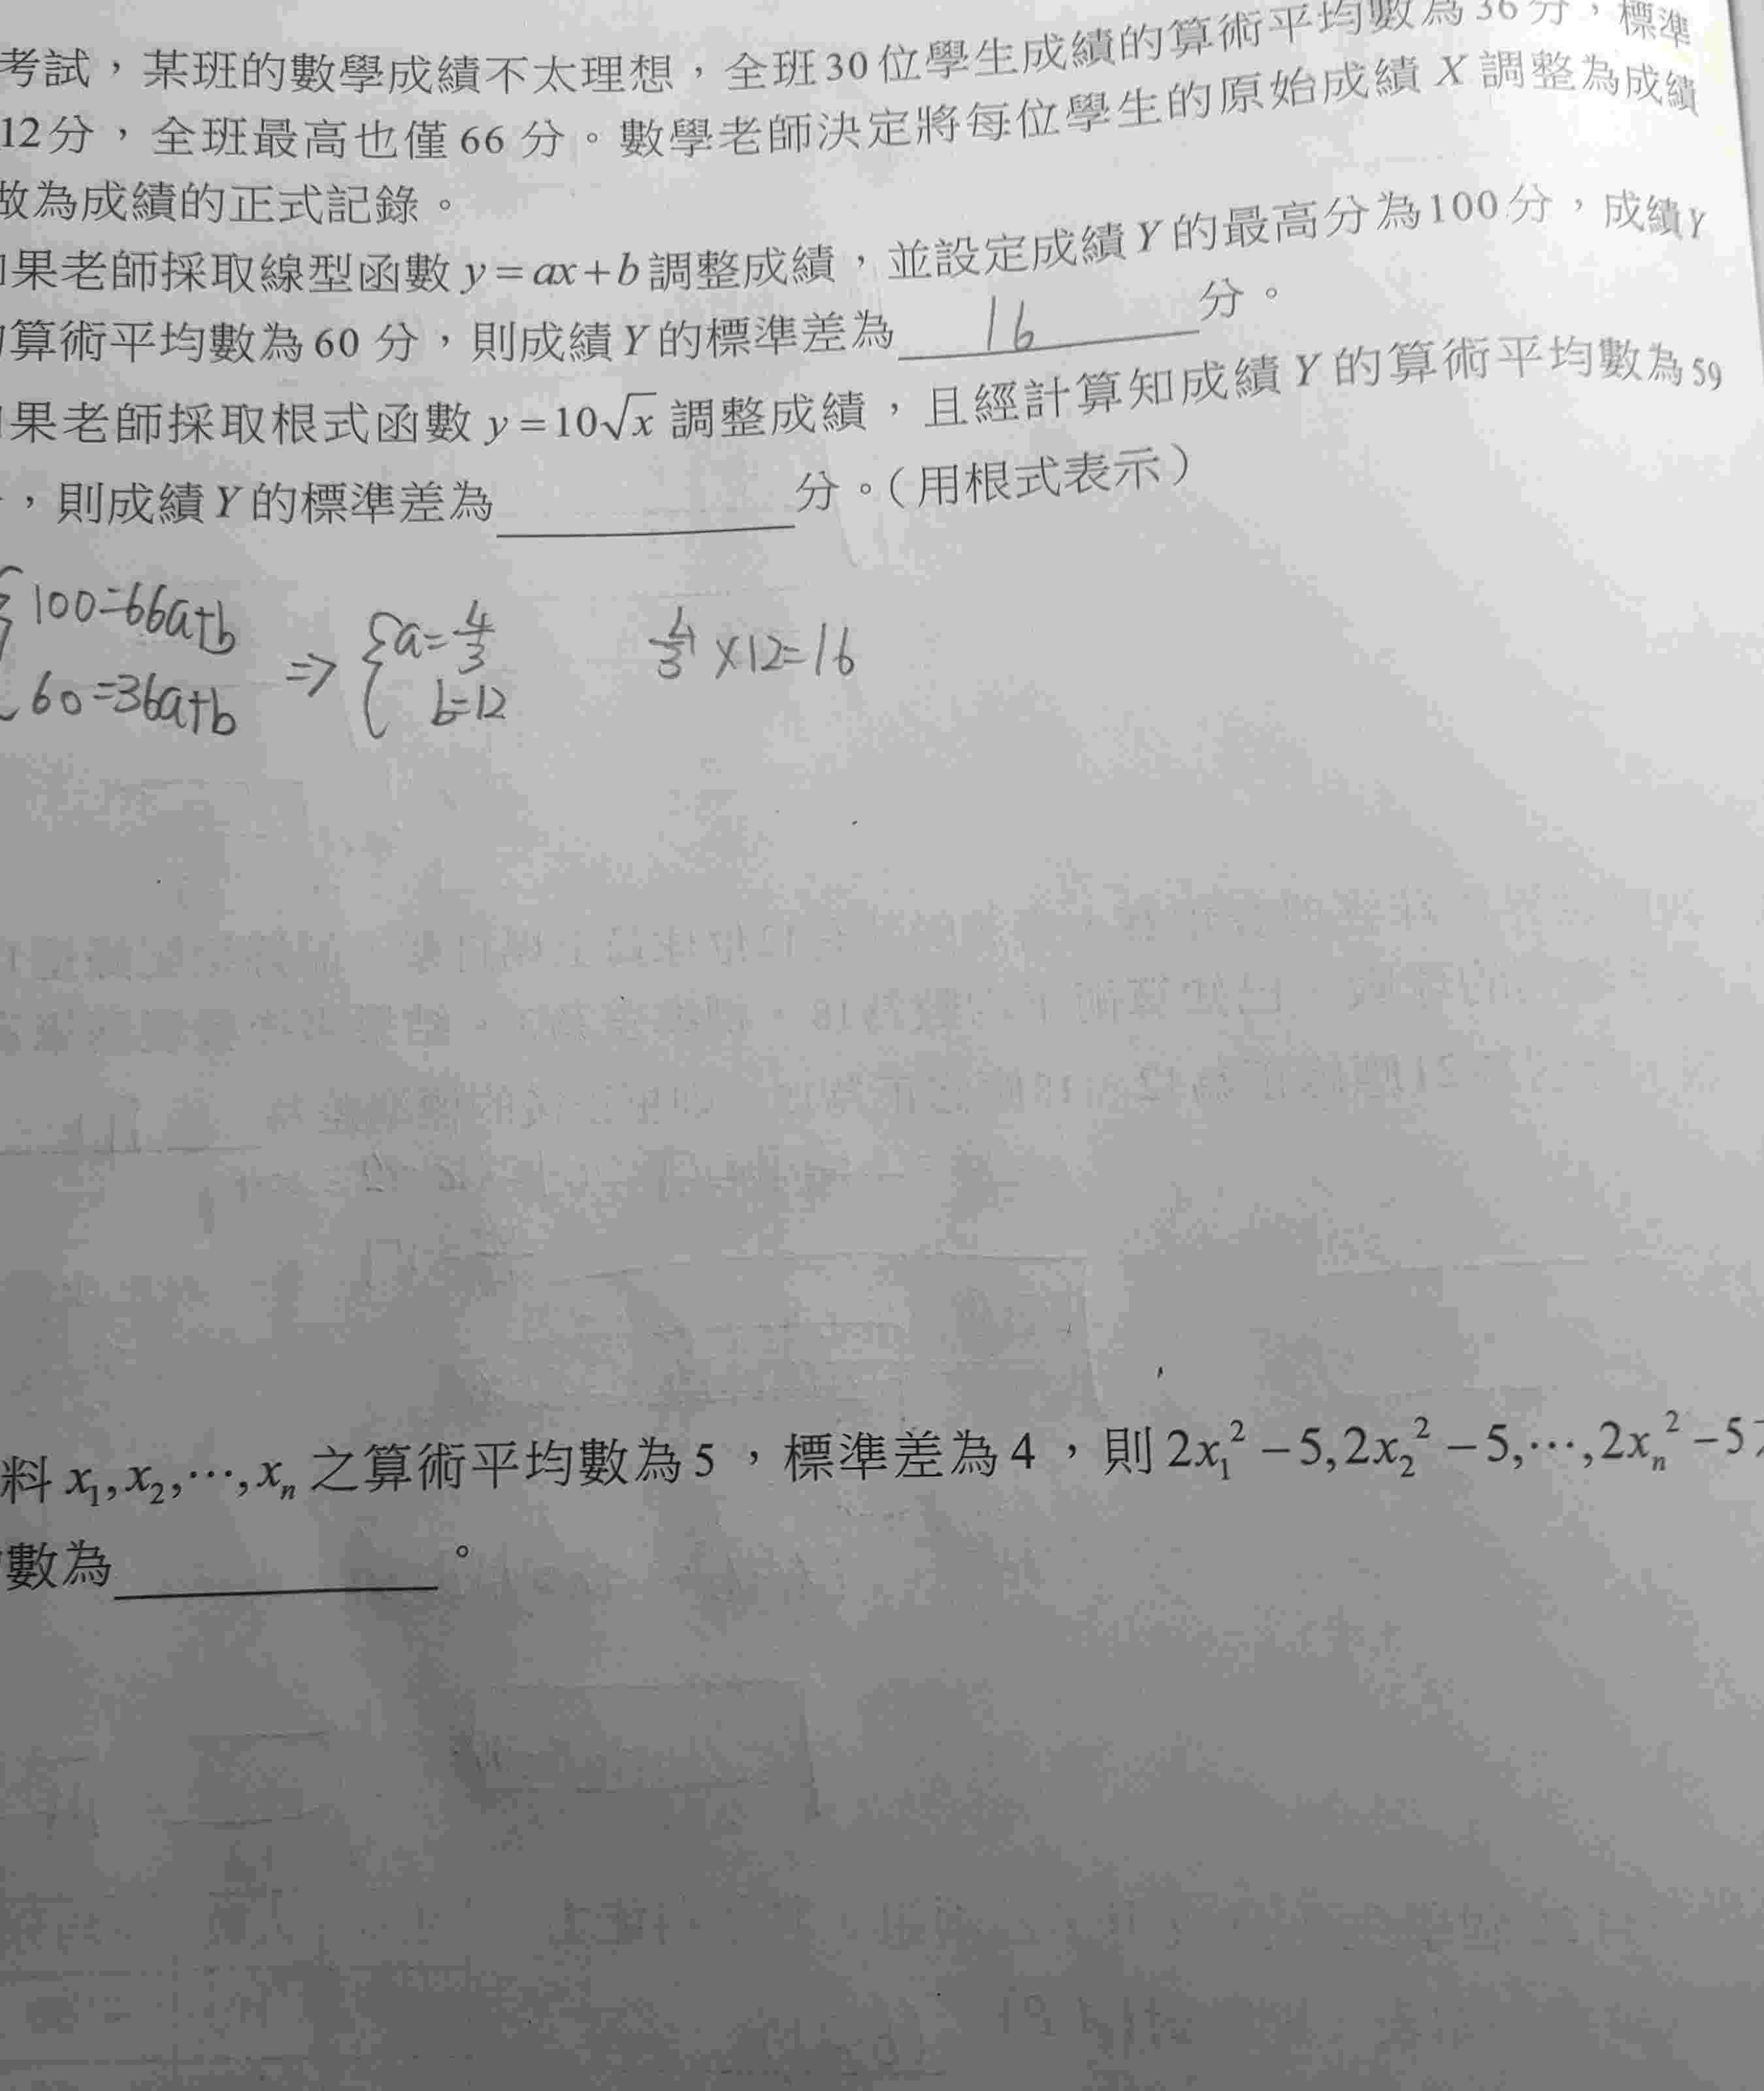 考試，某班的數學成績不太理想，全班30位學生成績的算術平均數為36分，標準
12分，全班最高也僅66分。數學老師決定將每位學生的原始成績X調整為成績
做為成績的正式記錄。
果老師採取線型函數y=ax+b調整成績，並設定成績Y的最高分為100分，成績Y
算術平均數為60分，則成績Y的標準差為 16 分。
果老師採取根式函數y=10√x調整成績，且經計算知成績Y的算術平均數為59
，則成績Y的標準差為____分。(用根式表示)
{100=66a+b
60=36a+b ⇒ {a=4/3
b=12
4/3×12=16
料x₁,x₂,⋯,xₙ之算術平均數為5，標準差為4，則2x₁²−5,2x₂²−5,⋯,2xₙ²−5
數為____。